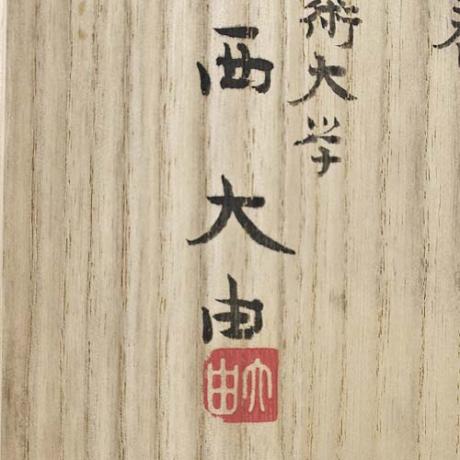 術大学
西大由
大由